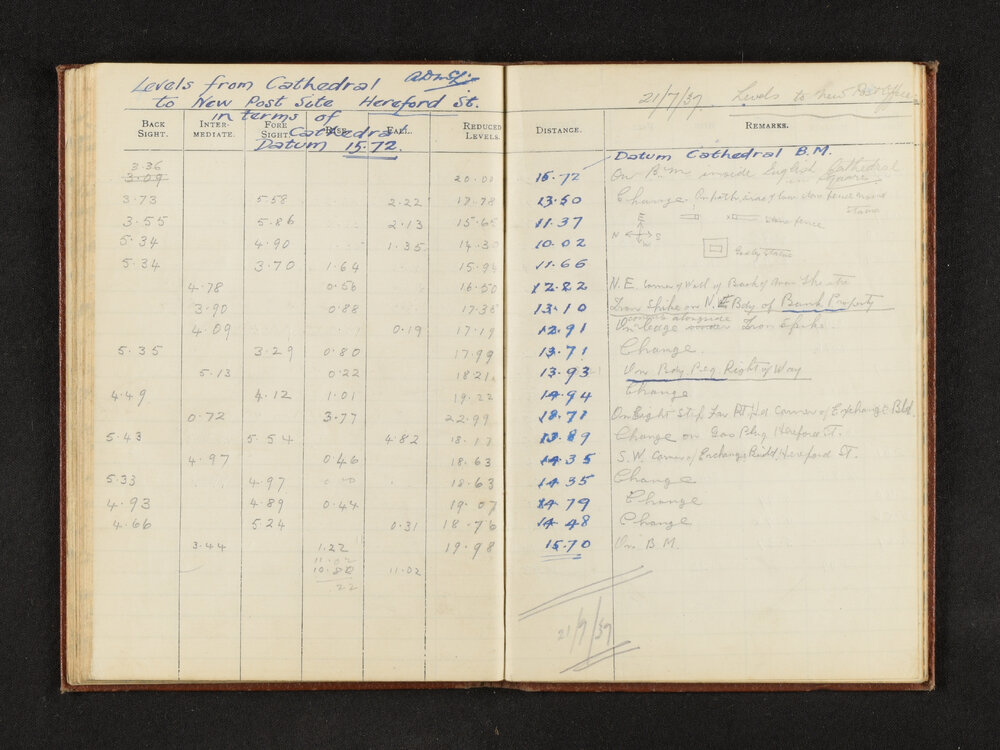 Levels from Cathedral
to New Post Site Hereford St.
in terms of
Cathedral
Datum 15.72.
21/7/37 Levels to New Post Office
BACK SIGHT. INTER-MEDIATE. FORE SIGHT. RISE. FALL. REDUCED LEVELS. DISTANCE. REMARKS.
Datum Cathedral B.M.
3.36
3.09 20.00 15.72 On B.M inside English Cathedral
Square
3.73 5.58 2.22 17.78 13.50 Change.
3.55 5.86 2.13 15.65 11.37 stone fence
E N S W
5.34 4.90 1.35 14.30 10.02 Godley Statue
5.34 3.70 1.64 15.94 11.66
4.78 0.56 16.50 12.22 N.E. Corner of Wall of Bank of Avon Theatre
3.90 0.88 17.38 13.10 Iron Spike on N.E Bdy of Bank Property
4.09 0.19 17.19 12.91 On ledge alongside Iron Spike.
5.35 3.29 0.80 17.99 13.71 Change.
5.13 0.22 18.21 13.93 On Bdy Peg Right of Way
4.49 4.12 1.01 19.22 14.94 Change
0.72 3.77 22.99 18.71 Corner of Exchange Bld.
5.43 5.54 4.82 18.17 13.89 Change on Hereford St.
4.97 0.46 18.63 14.35 S.W. Corner of Exchange Build Hereford St.
5.33 4.97 0.00 18.63 14.35 Change
4.93 4.89 0.44 19.07 14.79 Change
4.66 5.24 0.31 18.76 14.48 Change
3.44 1.22 19.98 15.70 On B.M.
11.02
10.80 11.02
22
21/7/37